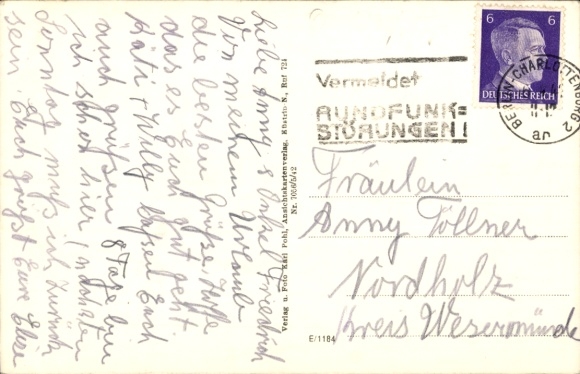 Liebe Anny & Onkel Friedrich
Von meinem Urlaub
die besten Grüße, Hoffe
das es Euch gut geht.
Käti + Willy lassen Euch
auch grüßen 8 Tage bin
ich schon hier, nächsten
Sonntag muß ich zurück
sein. Euch grüßt Eure Elsa
Verlag u. Foto Karl Pohl, Ansichtskartenverlag, Küstrin N., Ruf 724
Nr. 7056/5/42
6 6
DEUTSCHES REICH
Vermeidet
RUNDFUNK=
STÖRUNGEN!
BERLIN-CHARLOTTENBURG 2
an
Fräulein
Anny Töllner
Nordholz
Kreis Wesermünde
E/1184